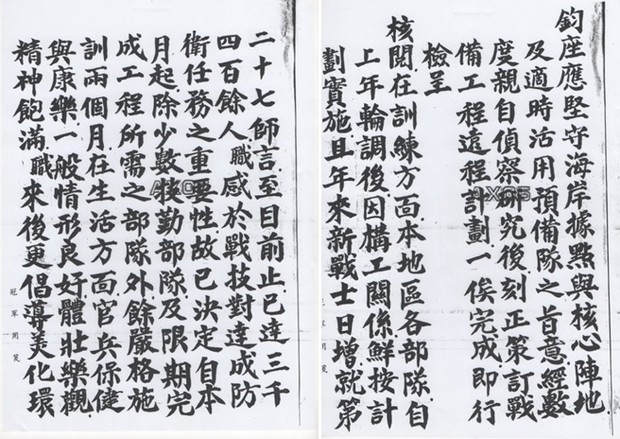 鈞座應堅守海岸據點與核心陣地
及適時活用預備隊之旨意經數
度親自偵察研究後刻正策訂戰
備工程遠程計劃一俟完成即行
檢呈
核閱在訓練方面本地區各部隊自
上年輪調後因構工關係鮮按計
劃實施且年來新戰士日增就第
二十七師言至目前止已達三千
四百餘人職感於戰技對達成防
衛任務之重要性故已決定自本
月起除少數特勤部隊及限期完
成工程所需之部隊外餘嚴格施
訓兩個月在生活方面官兵保健
與康樂一般情形良好體壯樂觀
精神飽滿職來後更倡導美化環